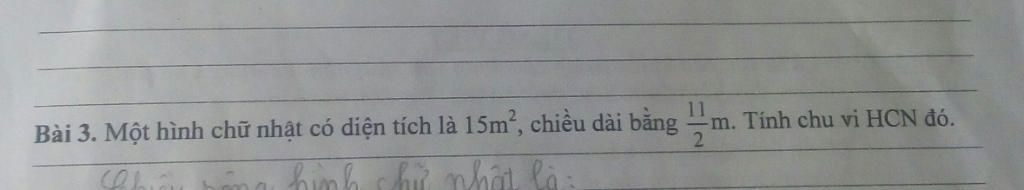 Bài 3. Một hình chữ nhật có diện tích là 15m², chiều dài bằng 11/2 m. Tính chu vi HCN đó.
Chiều rộng hình chữ nhật là: